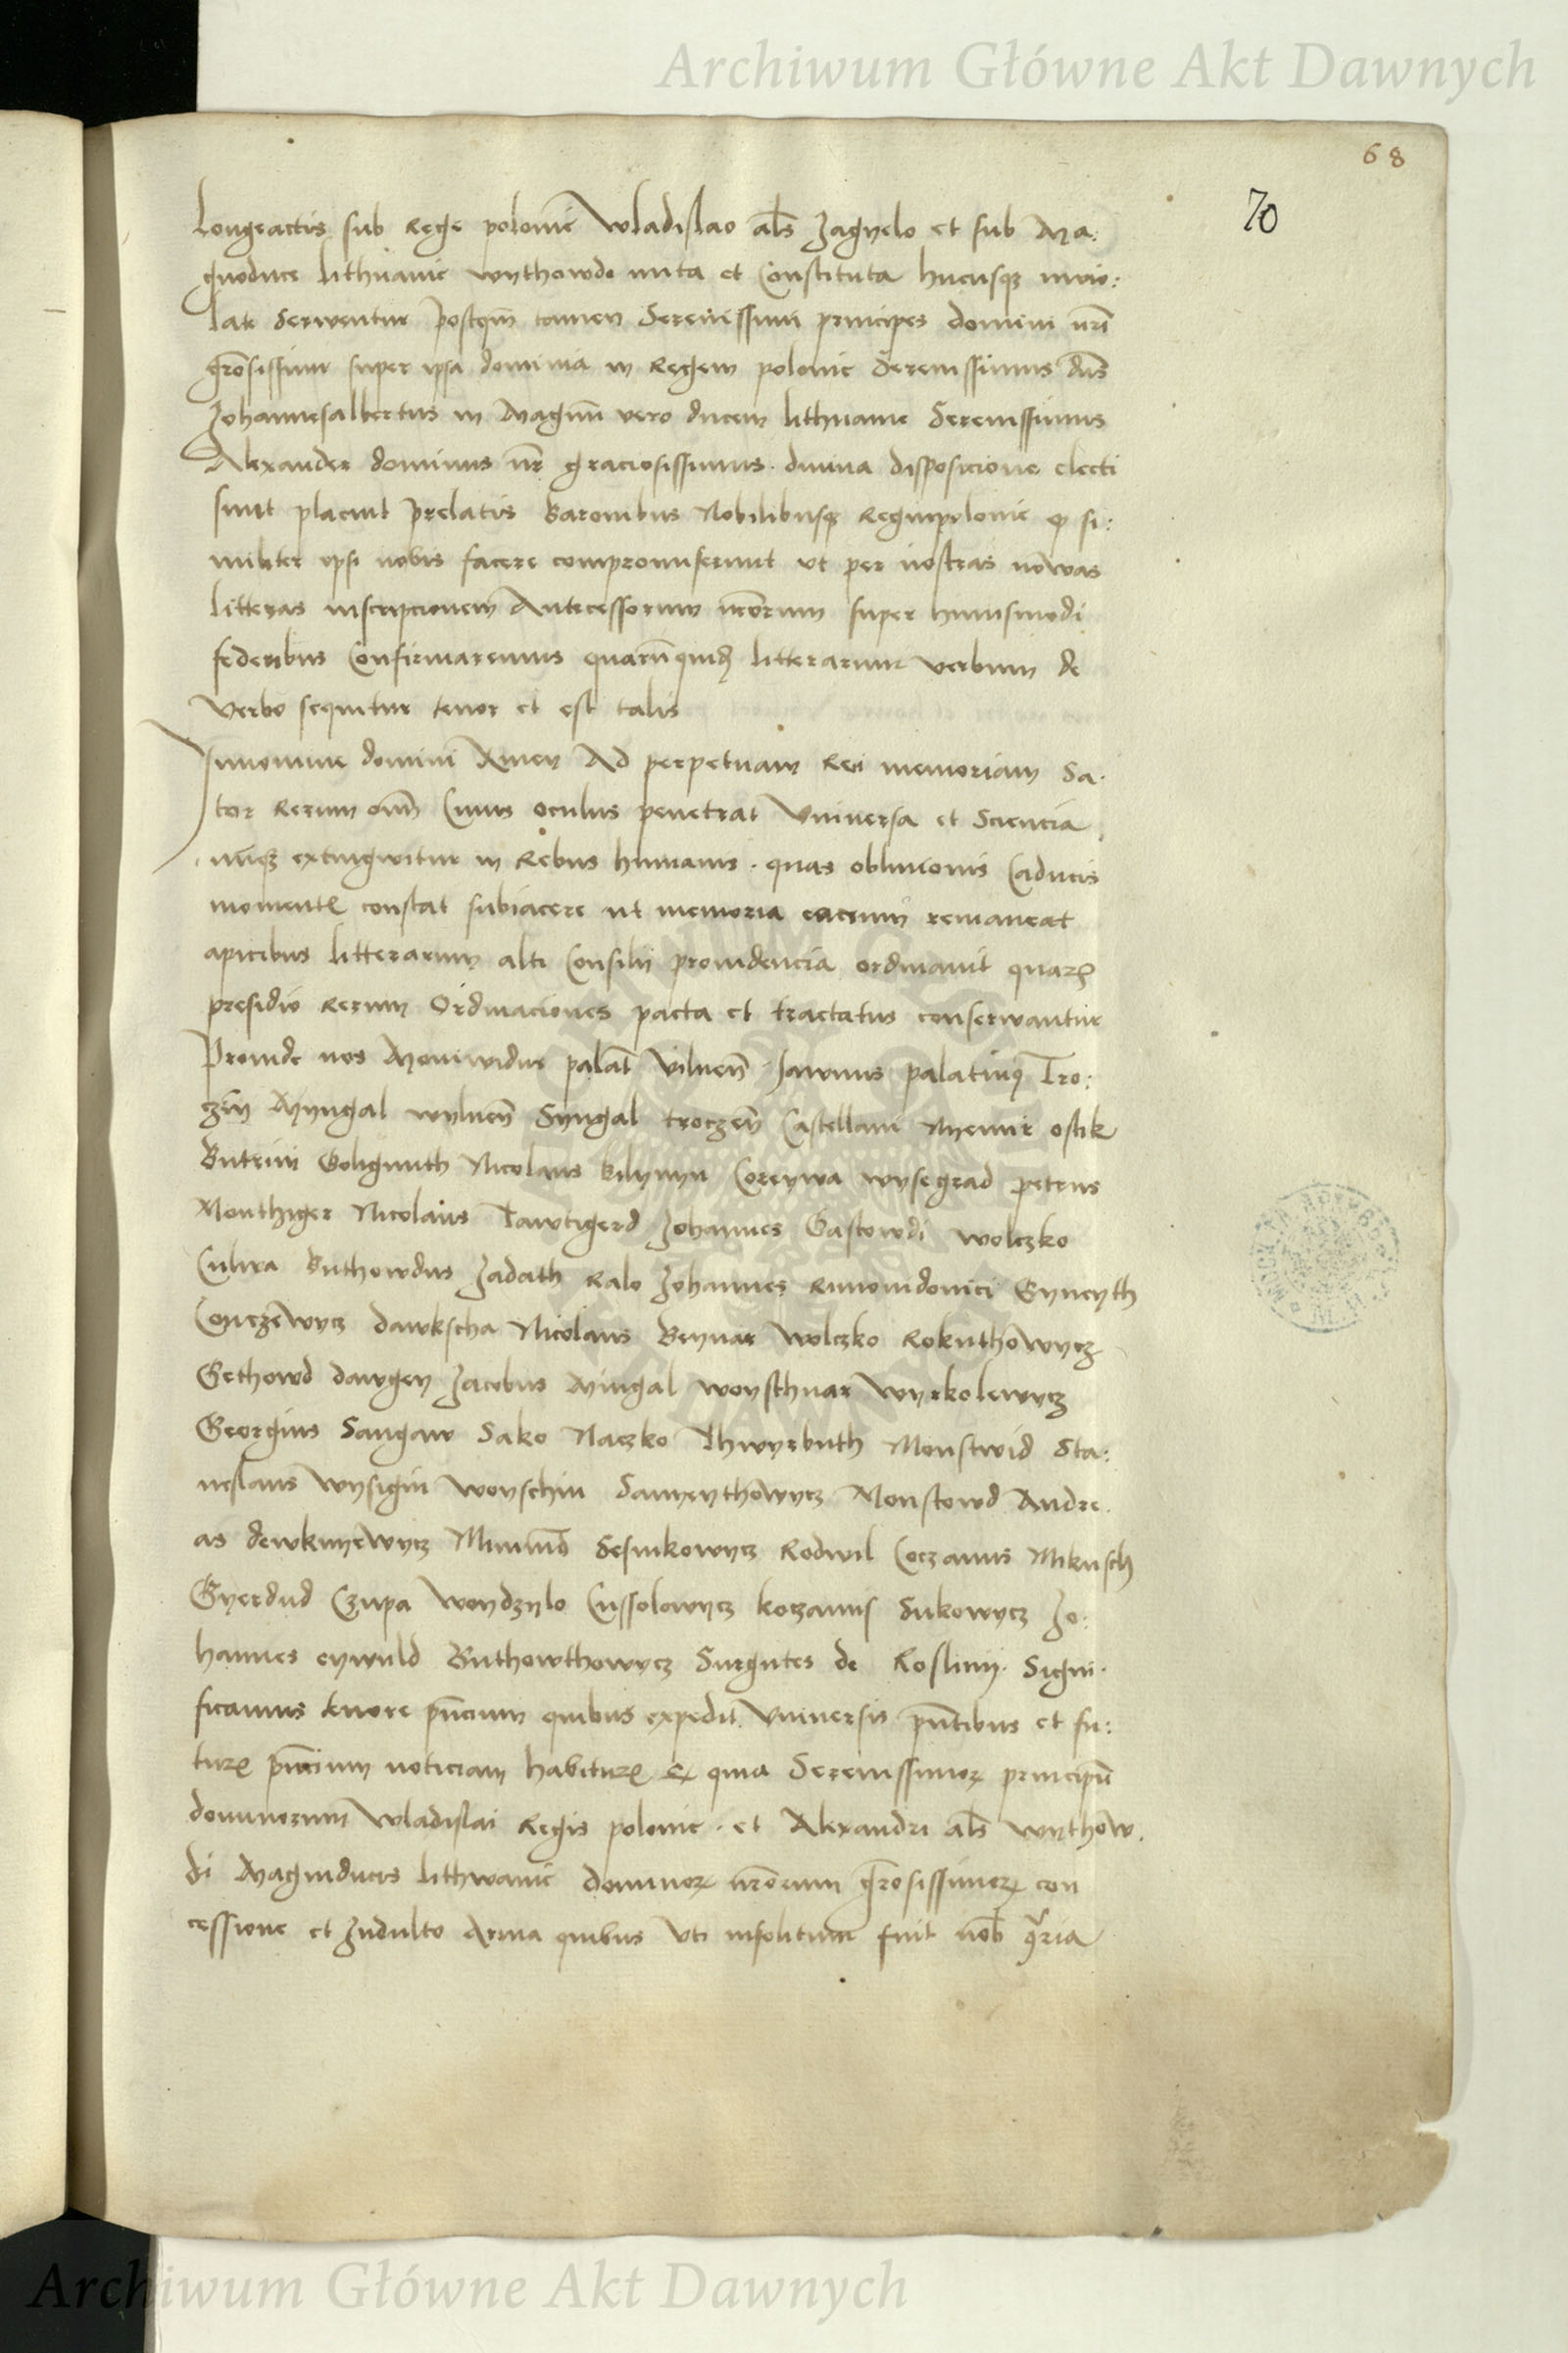 Archiwum Główne Akt Dawnych
68
70
Longeactis sub Rege polonie Wladislao als Jagyelo et sub Ma:
gnoduce lithuanie wythowdo inita et Constituta hucusq inuio:
late Serwentur postqm tamen Serenissimi principes domini nri
grosissimi super ipsa dominia in Regem polonie Serenissimus dns
Johannesalbertus in Magnu vero ducem lithuanie Serenissimus
Alexander dominus nr graciosissimus. diuina disposicione electi
sunt placuit prelatis Baronibus Nobilibusq Regnipolonie q si:
militer ipsi nobis facere compromiserunt vt per nostras nowas
litteras inscripcionem Antecessorum nrorum super huiusmodi
federibus Confirmaremus quaruquid litterarum verbum de
verbo sequitur tenor et est talis
Innomine domini Amen Ad perpetuam Rei memoriam Sa.
tor Rerum oim Cuius oculus penetrat Vniuersa et Sciencia
nuq extingwitur in Rebus humanis. quas obliuionis Caducis
moment constat subiacere ut memoria earum remaneat
apicibus litterarum alti Consilij prouidencia ordinauit quar
presidio Rerum Ordinaciones pacta et tractatus conserwantur
Proinde nos Moniwidus palat Vilnen Jawnus palatinq Tro:
czen Myngal wylnen Syngal troczen Castellani Nyemir ostik
Butrim Goligunth Nicolaus Bilymyn Coreywa wysegrad petrus
Monthiger Nicolaus Tawtigerd Johannes Gastowdi wolczko
Culwa Buthowdus Jadath Ralo Johannes Rimowidouici Gyneyth
Conczewycz dawkscha Nicolaus Beynar Wolczko Rokuthowycz
Gethowd dawgen Jacobus Mingal woyschnar Wyrkolewycz
Georgius Sangaw Sako Naczko Thwyrbuth Monstwid Sta:
neslaus wysigin woyschin Damyenthowycz Monstowd Andre.
as dewknyewycz Minimd Sesnikowycz Rodwil Coczanus Mikusch
Gyerdud Czupa Woydzylo Cussolowycz koczanus Sukowycz Jo:
hannes eywuld Buthowthowycz Surgutes de Roslinij. Signi.
ficamus tenore pncium quibus expedit Vniuersis pntibus et fu:
tur pncium noticiam habitur q quia Serenissimor principu
dominorum Wladislai Regis polonie. et Alexandri als wythow.
di Magniducis lithwanie dominor nrorum grosissimor con
cessione et Indulto Arma quibus vti insolitum fuit nob
Archiwum Główne Akt Dawnych